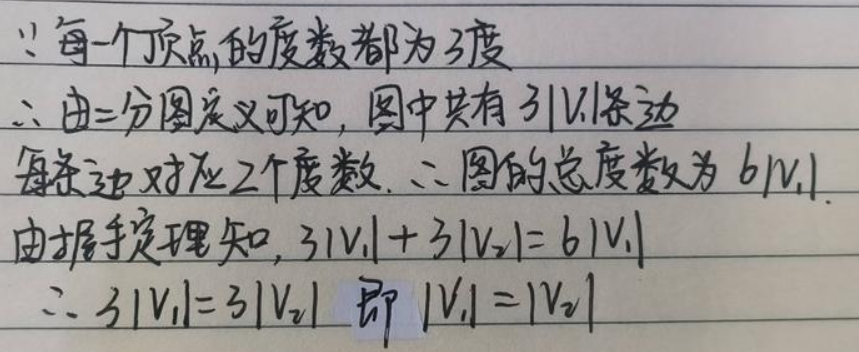 ∵每一个顶点的度数都为3度
∴由二分图定义可知,图中共有3|V₁|条边
每条边对应2个度数.∴图的总度数为6|V₁|.
由握手定理知,3|V₁|+3|V₂|=6|V₁|
∴3|V₁|=3|V₂| 即|V₁|=|V₂|